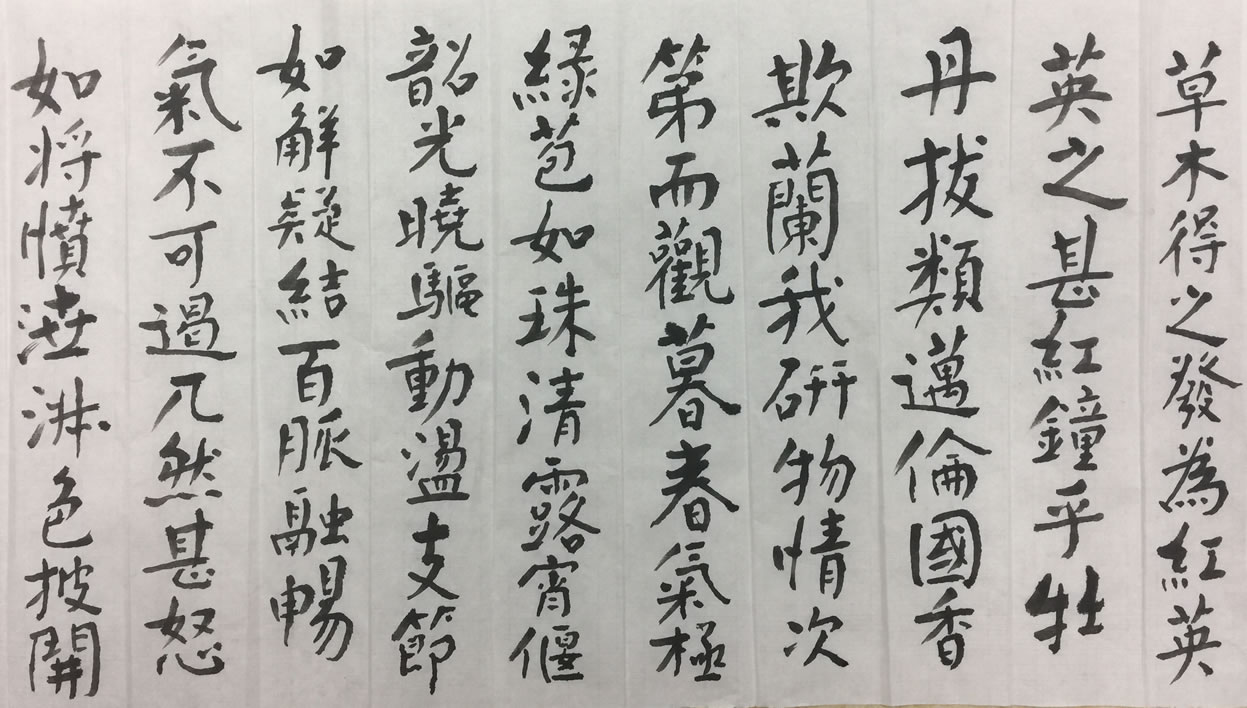 草木得之發為紅英
英之甚紅鐘乎牡
丹拔類邁倫國香
欺蘭我研物情次
第而觀暮春氣極
緑苞如珠清露宵偃
韶光曉驅動盪支節
如解疑結百脈融暢
氣不可遏兀然甚怒
如将憤泄淑色披開